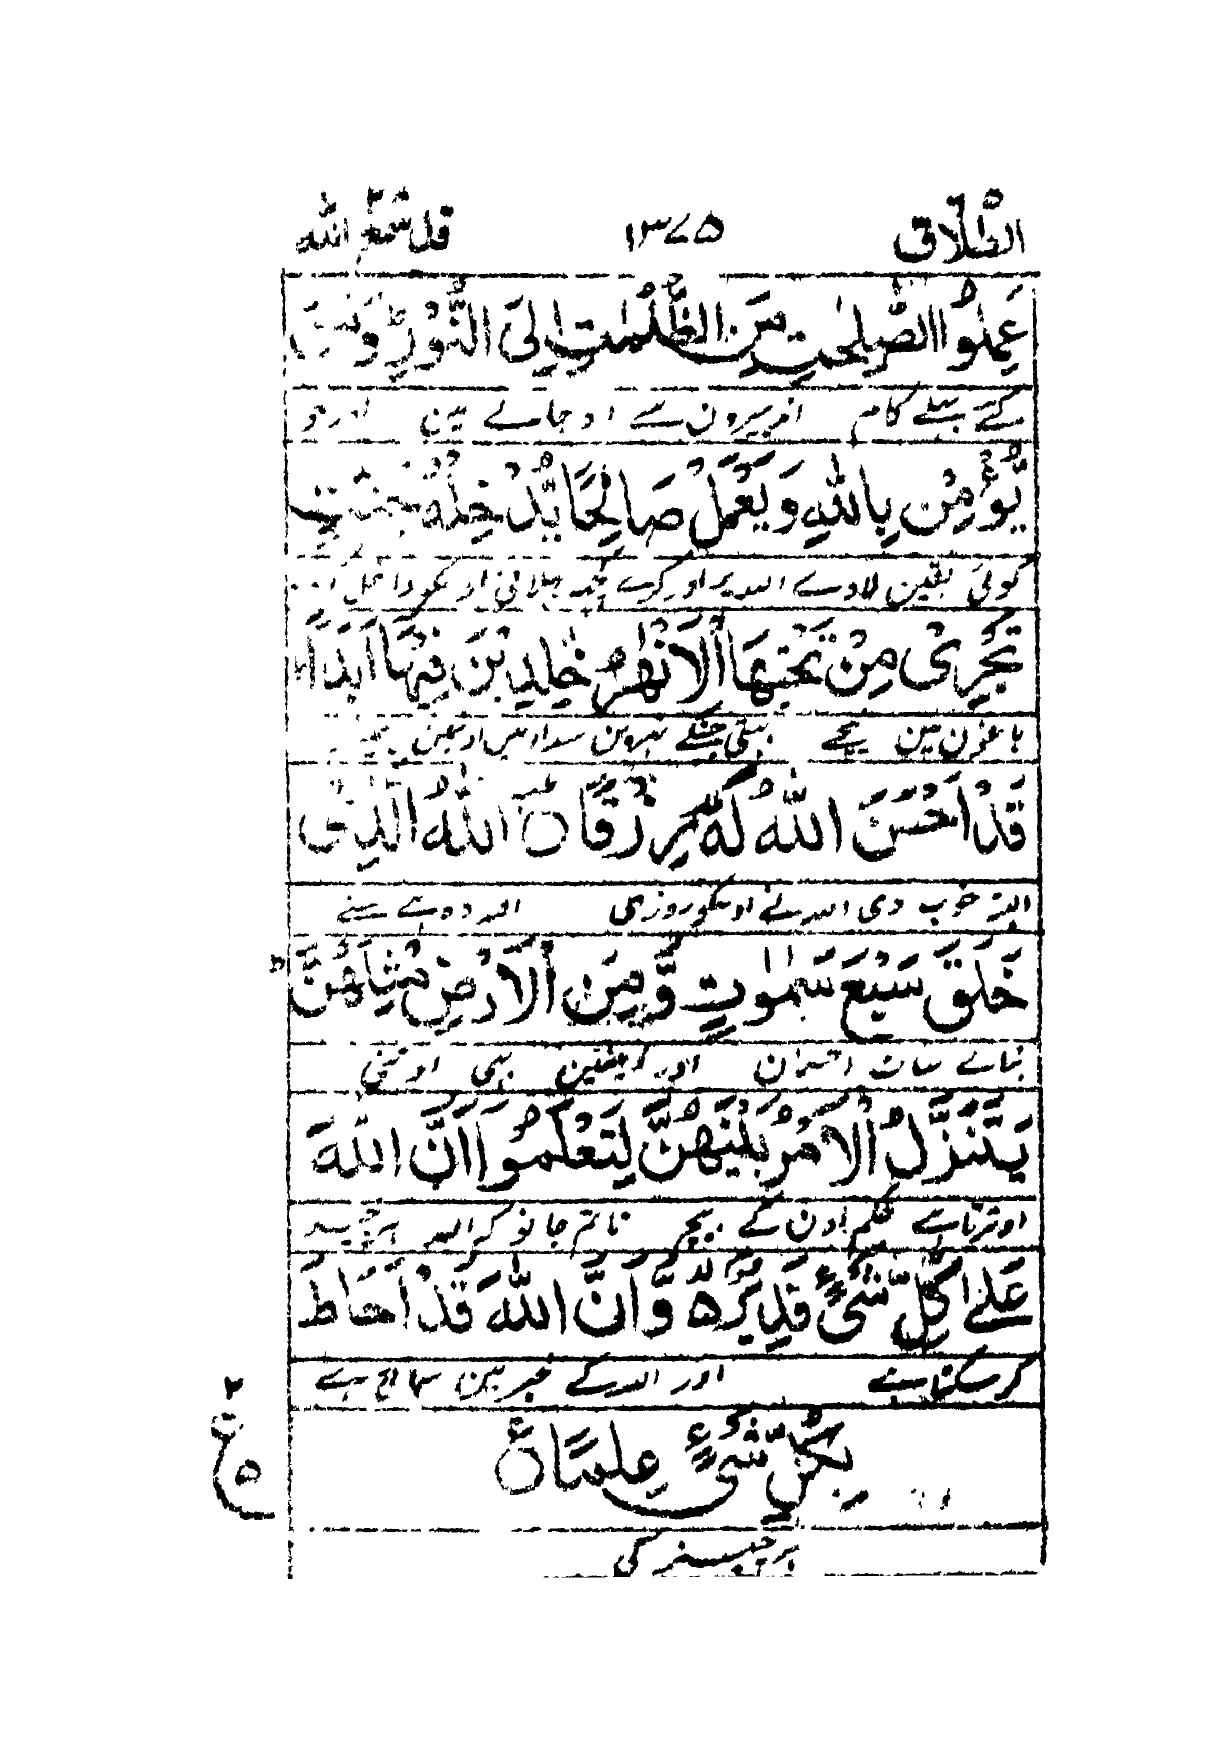 الطلاق ٦٥ ١٣٧٥ قد سمع الله ٢٨
عَمِلُوا الصّٰلِحٰتِ مِنَ الظُّلُمٰتِ اِلَى النُّوْرِ ؕ وَمَنْ
کئے بھلے کام اندھیرون سے اوجالے مین اور جو
يُّؤْمِنْۢ بِاللّٰهِ وَيَعْمَلْ صَالِحًا يُّدْخِلْهُ جَنّٰتٍ
کوئی یقین لاوے اللہ پر اور کرے کچھ بھلائی اوسکو داخل
تَجْرِيْ مِنْ تَحْتِهَا الْاَنْهٰرُ خٰلِدِيْنَ فِيْهَآ اَبَدًا ؕ
باغون مین نیچے بہتی جنکے نہرین سدا رہین اونمین
قَدْ اَحْسَنَ اللّٰهُ لَهٗ رِزْقًا ۝ اَللّٰهُ الَّذِيْ
البتہ خوب دی اللہ نے اوسکو روزی اللہ وہ ہے جسنے
خَلَقَ سَبْعَ سَمٰوٰتٍ وَّمِنَ الْاَرْضِ مِثْلَهُنَّ ؕ
بنائے سات آسمان اور زمینین بھی اوتنی
يَتَنَزَّلُ الْاَمْرُ بَيْنَهُنَّ لِتَعْلَمُوْٓا اَنَّ اللّٰهَ
اوترتا ہے حکم اون کے بیچ تا تم جانو کہ اللہ ہر چیز
عَلٰى كُلِّ شَيْءٍ قَدِيْرٌ ۙ وَّاَنَّ اللّٰهَ قَدْ اَحَاطَ
کر سکتا ہے اور اللہ کے خبر مین سمائی ہے
٢
ع
٥
بِكُلِّ شَيْءٍ عِلْمًا ۝
ہر چیز کی